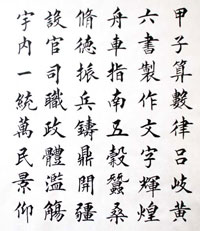 甲子算數律呂岐黃
六書製作文字輝煌
舟車指南五穀蠶桑
脩德振兵鑄鼎開疆
設官司職政體濫觴
宇內一統萬民景仰